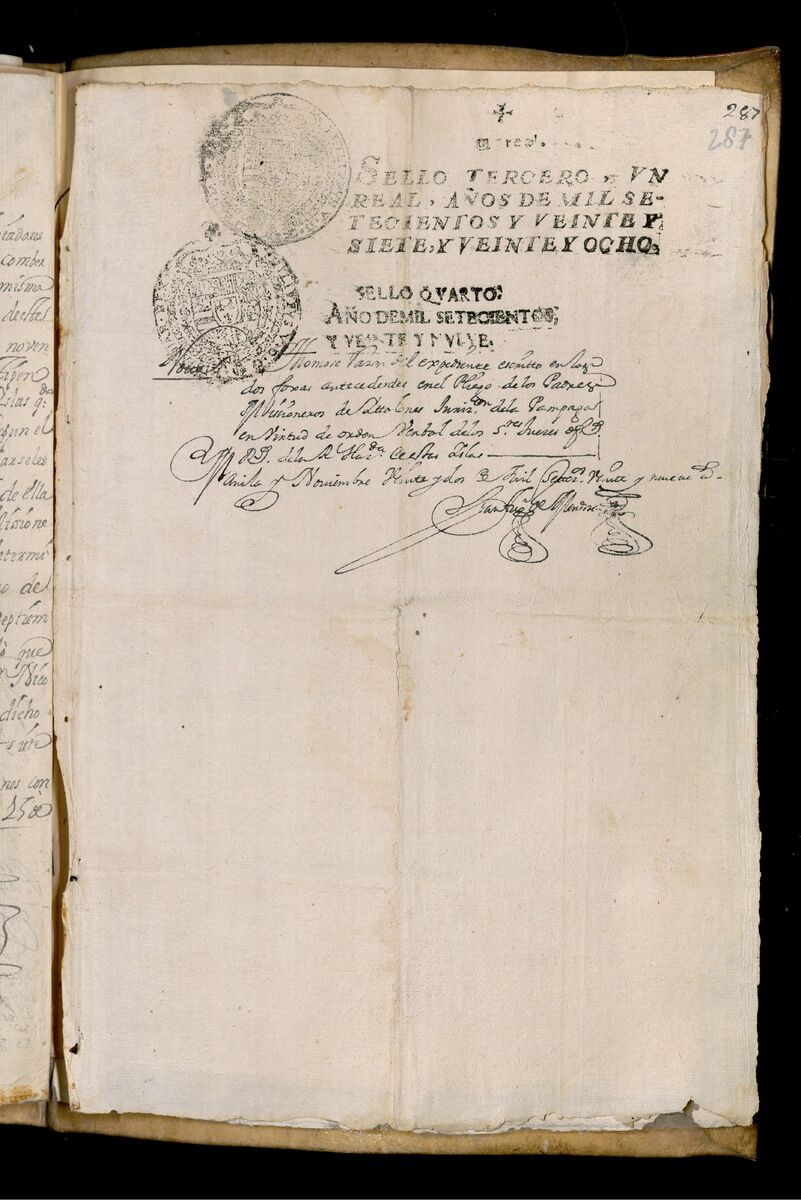 287
287
vn real.
SELLO TERCERO, VN
REAL, AÑOS DE MIL SE-
TECIENTOS Y VEINTE Y
SIETE, Y VEINTE Y OCHO.
SELLO QVARTO:
AÑO DE MIL SETECIENTOS,
Y VEINTE Y NVEVE.
Thomose Razon del expediente escrito en las
dos foxas antecedentes en el Pliego de los Padres
Missioneros de Ytalones Juriz.on de la Pampaga
en Virtud de orden Verbal de los S.res Juezes
de la R.l Haz.da de estas Islas
Manila y Noviembre Veinte y dos de Mill Setez.s Veinte y nueve
tadores
combe
misma
destes
noven
Islas q.
gun el
de ella
Missione
etermi
o de
eptiem
o que
Nico
dicho
siete
nos con